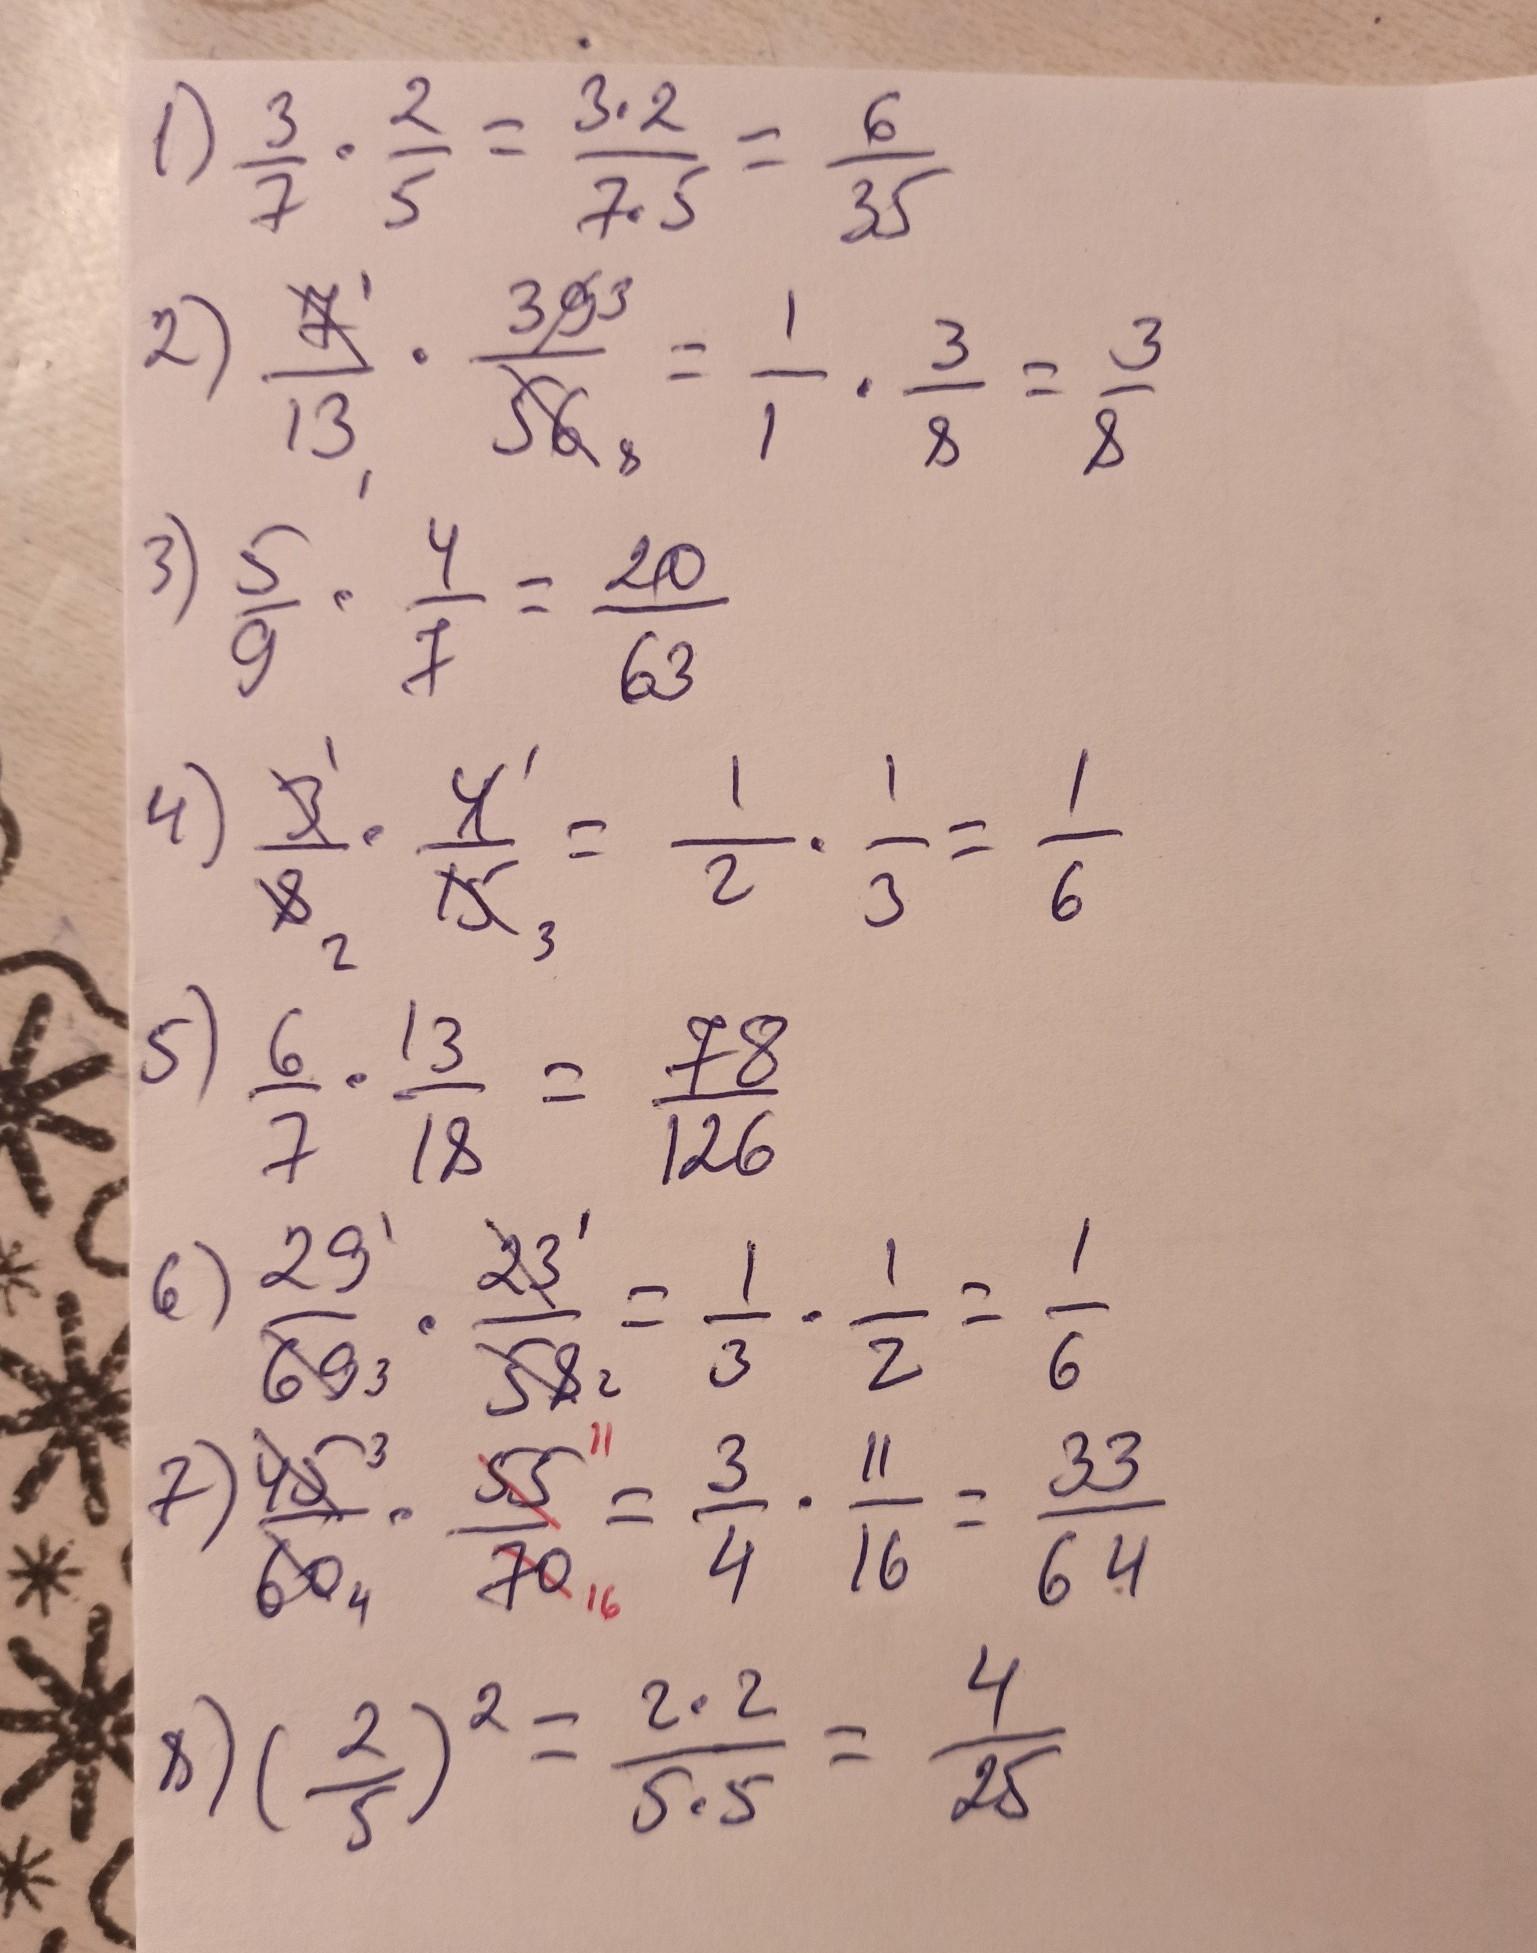 1) 3/7 · 2/5 = 3·2/7·5 = 6/35
2) 7¹/13₁ · 39³/56₈ = 1/1 · 3/8 = 3/8
3) 5/9 · 4/7 = 20/63
4) 5¹/8₂ · 4¹/15₃ = 1/2 · 1/3 = 1/6
5) 6/7 · 13/18 = 78/126
6) 29¹/69₃ · 23¹/58₂ = 1/3 · 1/2 = 1/6
7) 45³/60₄ · 55¹¹/70₁₆ = 3/4 · 11/16 = 33/64
8) (2/5)² = 2·2/5·5 = 4/25